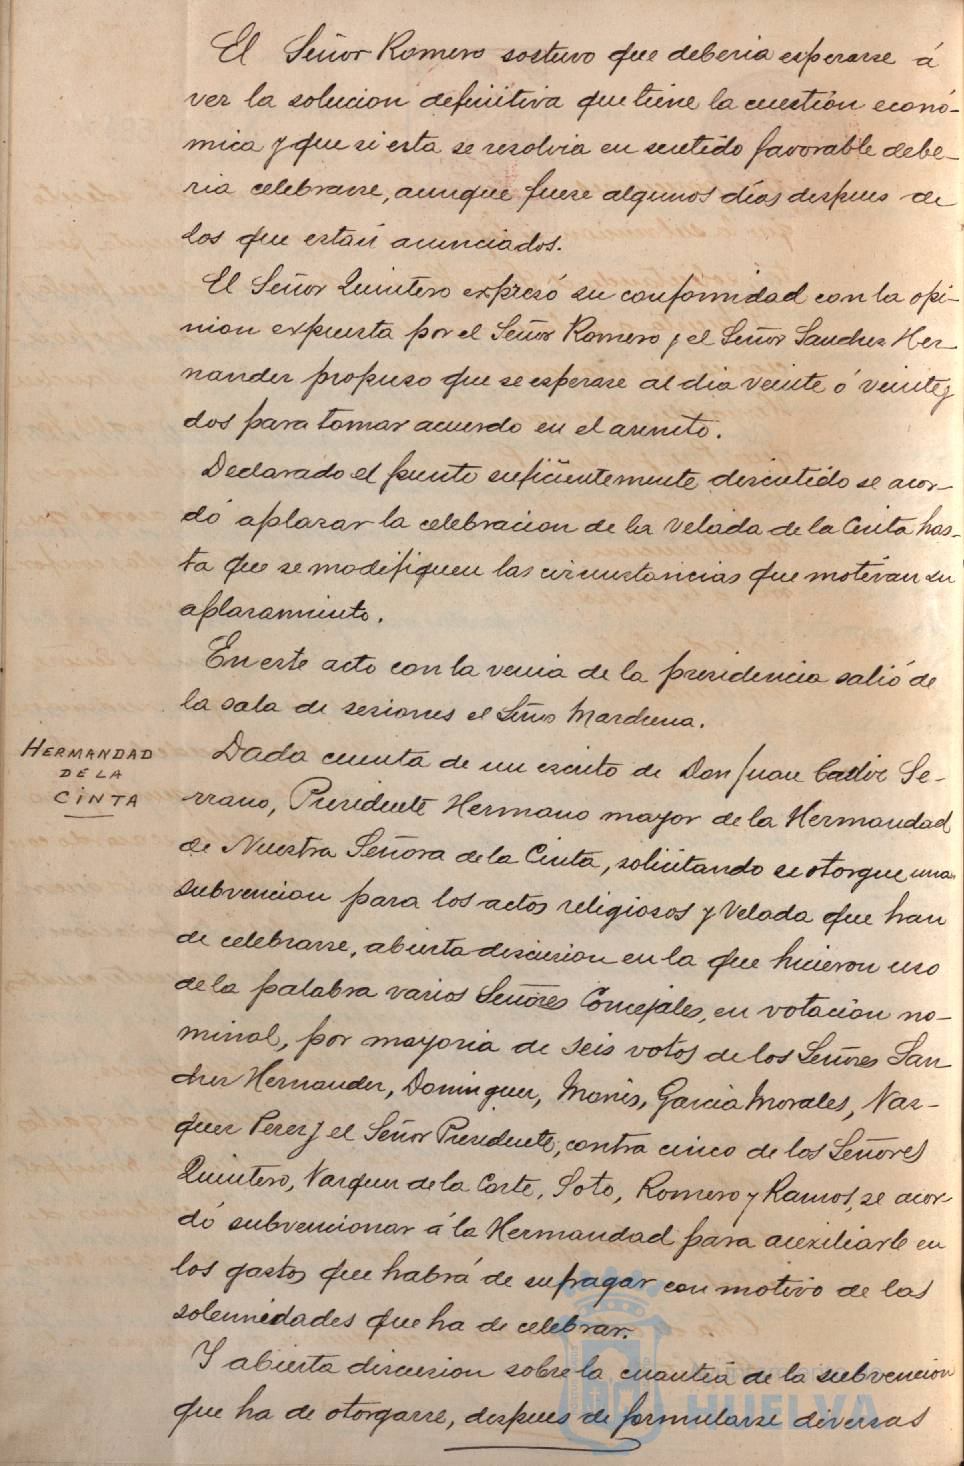 El Señor Romero sostuvo que deberia esperarse á
ver la solucion definitiva que tiene la cuestión econó-
mica y que si esta se resolvia en sentido favorable debe-
ria celebrarse, aunque fuese algunos días despues de
los que están anunciados.
El Señor Quintero expresó su conformidad con la opi-
nion expuesta por el Señor Romero y el Señor Sanchez Her-
nandez propuso que se esperase al dia veinte ó veintey
dos para tomar acuerdo en el asunto.
Declarado el punto suficientemente discutido se acor-
dó aplazar la celebracion de la Velada de la Cinta has-
ta que se modifiquen las circunstancias que motivan su
aplazamiento.
En este acto con la venia de la presidencia salió de
la sala de sesiones el Señor Marchena.
HERMANDAD
DE LA
CINTA
Dada cuenta de un escrito de Don Juan Cadiz Se-
rrano, Presidente Hermano mayor de la Hermandad
de Nuestra Señora de la Cinta, solicitando se otorgue una
subvencion para los actos religiosos y Velada que han
de celebrarse, abierta discusion en la que hicieron uso
de la palabra varios Señores Concejales, en votacion no-
minal, por mayoria de seis votos de los Señores San
chez Hernandez, Dominguez, Monis, Garcia Morales, Vaz-
quez Perez y el Señor Presidente, contra cinco de los Señores
Quintero, Vazquez de la Corte, Soto, Romero y Ramos, se acor
dó subvencionar á la Hermandad para auxiliarle en
los gastos que habrá de sufragar con motivo de las
solemnidades que ha de celebrar.
Y abierta discusion sobre la cuantia de la subvencion
que ha de otorgarse, despues de formularse diversas
Ayuntamiento de
HUELVA